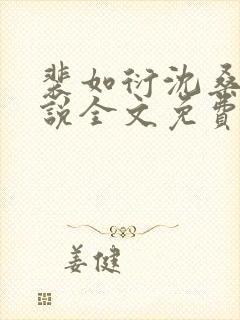 裴如衍沈桑
说全文免费
姜健